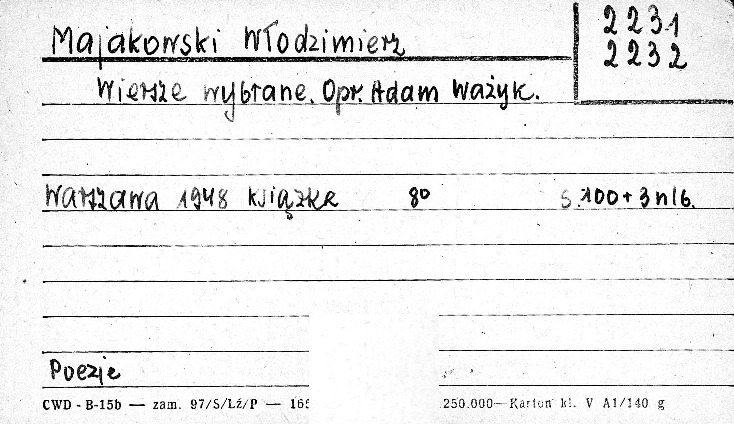 Majakowski Włodzimierz
2231
2232
Wiersze wybrane. Opr. Adam Ważyk.
Warszawa 1948 Książka 8° S. 100 + 3 nlb.
Poezje
CWD - B-15b — zam. 97/S/Lż/P — 165 250.000— Karton kl. V A1/140 g